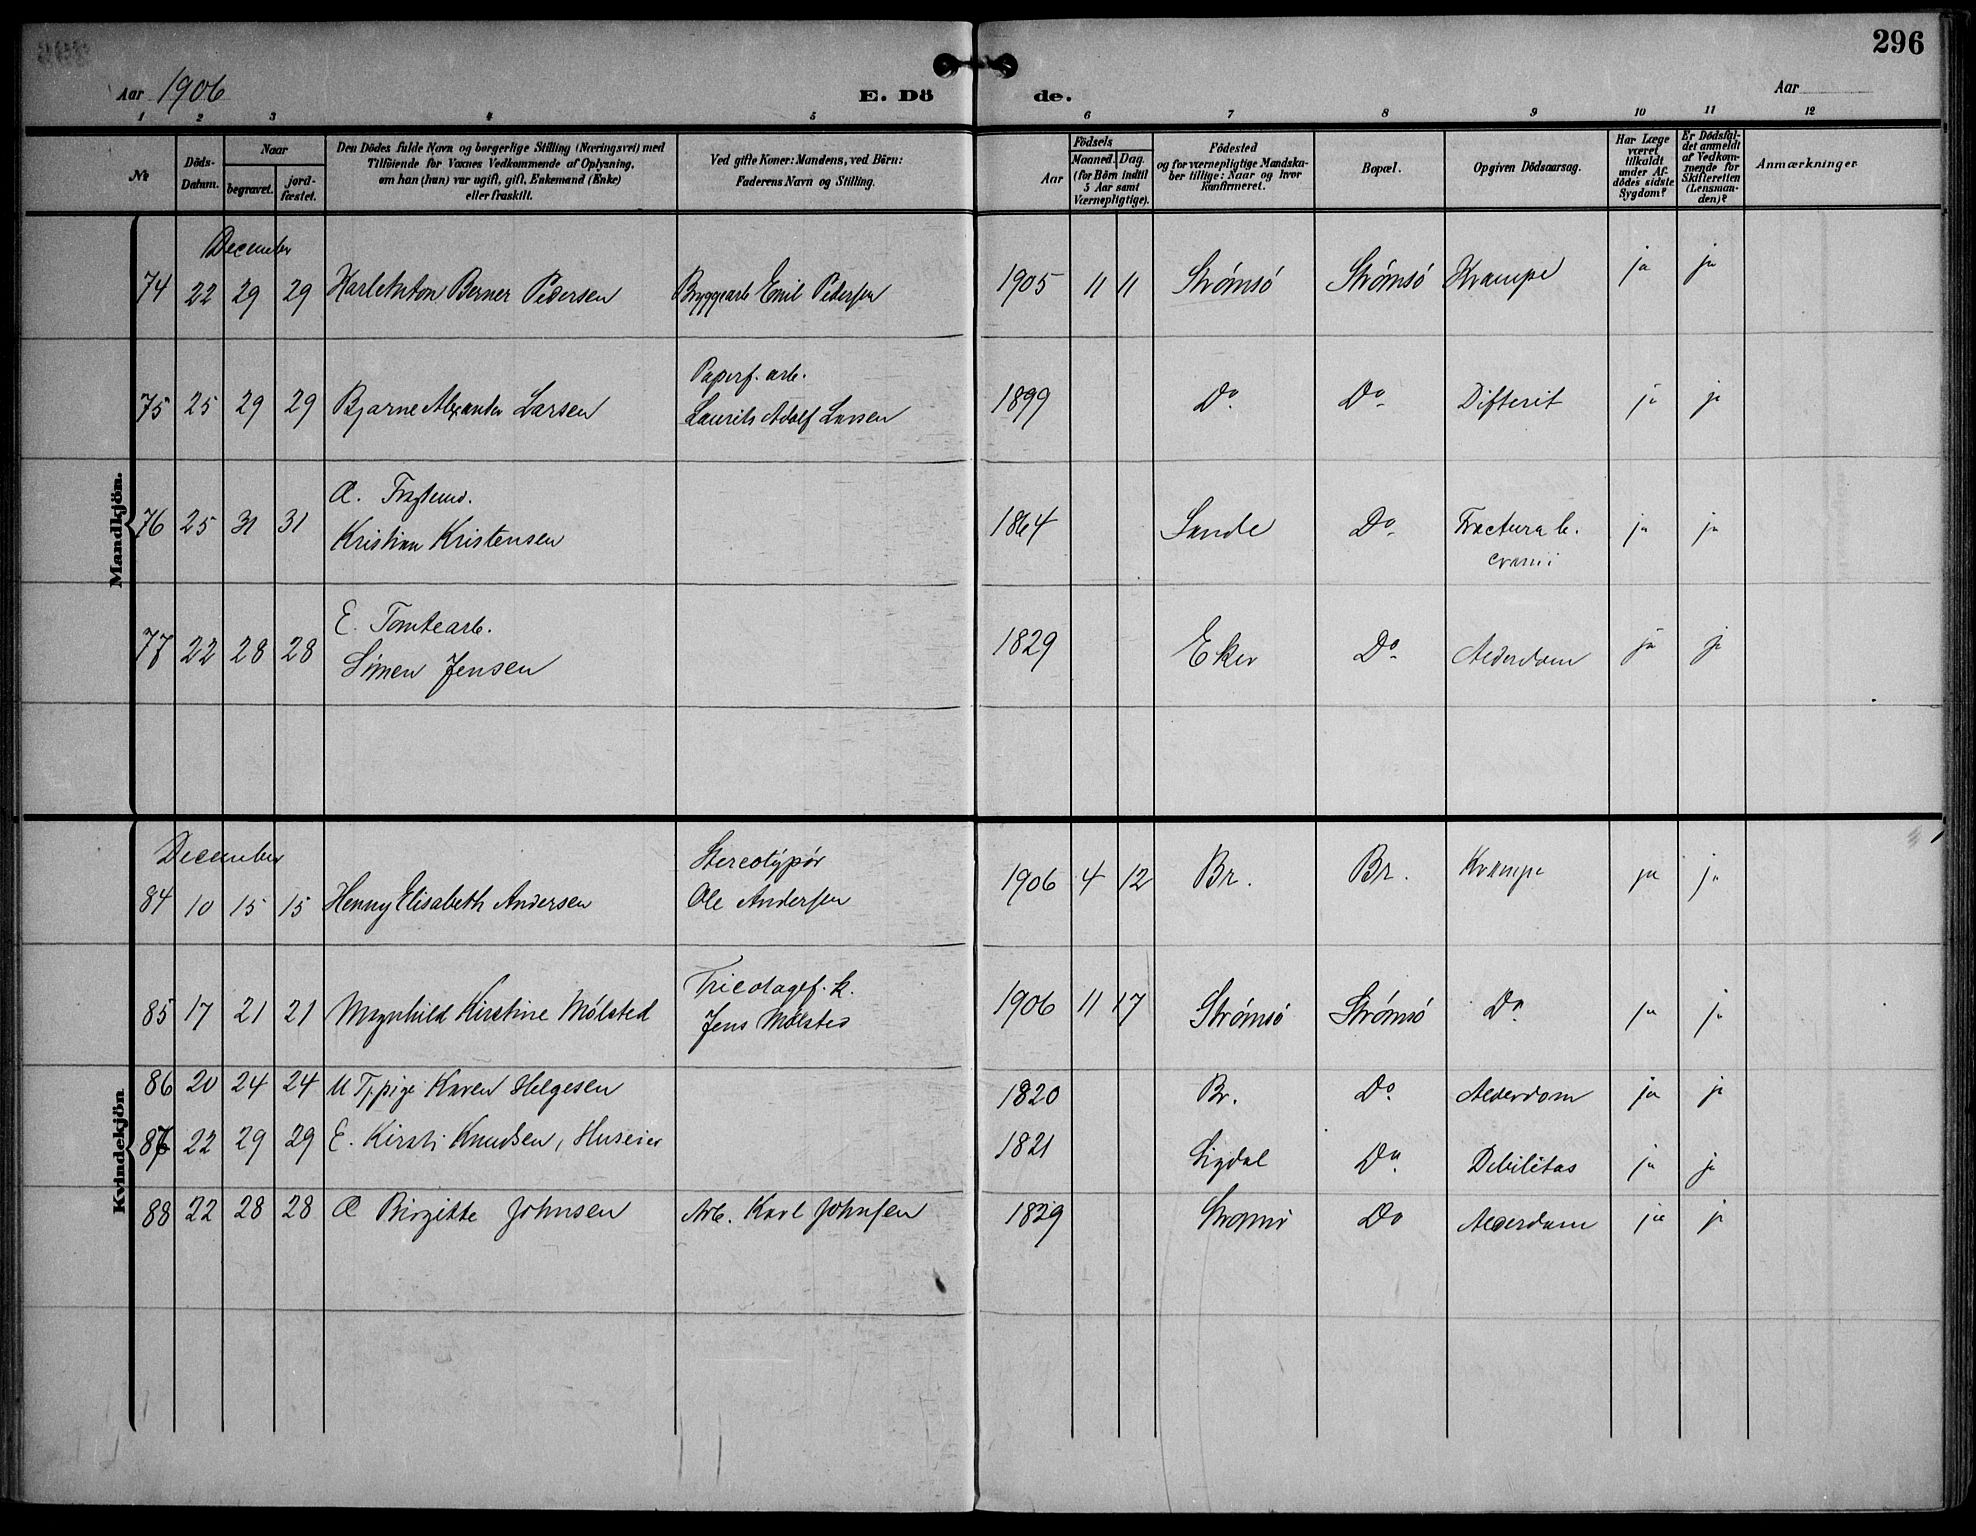 296
Aar 1906 E. Dö de. Aar
1 2 3 4 5 6 7 8 9 10 11 12
№ Döds-Datum. Naar begravet. jord-fæstet. Den Dödes fulde Navn og borgerlige Stilling (Næringsvei) med Tilföiende for Voxnes Vedkommende af Oplysning, om han (hun) var ugift, gift, Enkemand (Enke) eller fraskilt. Ved gifte Koner: Mandens, ved Börn: Faderens Navn og Stilling. Födsels Aar Maaned. Dag. (for Börn indtil 5 Aar samt Værnepligtige). Födested og for værnepligtige Mandskaber tillige: Naar og hvor konfirmeret. Bopæl. Opgiven Dödsaarsag. Har Læge været tilkaldt under Afdödes sidste Sygdom? Er Dödsfaldet anmeldt af Vedkommende for Skifteretten (Lensmanden)? Anmærkninger
Mandkjön.
December
74 22 29 29 Karl Anton Berner Pedersen Bryggearb Emil Pedersen 1905 11 11 Strømsö Strømsö Krampe ja ja
Paperf. arb.
75 25 29 29 Bjarne Alexander Larsen Laurits Adolf Larsen 1899 Do Do Difterit ja ja
76 25 31 31 Kristian Kristensen 1864 Sande Do Fractura b. cranii ja ja
E. Tomtearb.
77 22 28 28 Simen Jensen 1829 Eker Do Alderdom ja ja
Kvindekjön
December Stereotypör
84 10 15 15 Henny Elisabeth Andersen Ole Andersen 1906 4 12 Br. Br. Krampe ja ja
Tricotagef. k.
85 17 21 21 Magnhild Kirstine Mölsted Jens Mölsted 1906 11 17 Strømsö Strømsö Do ja ja
86 20 24 24 U Tj.pige Karen Helgesen 1820 Br. Do Alderdom ja ja
87 22 29 29 E. Kirsti Knudsen, Huseier 1821 Sigdal Do Debilitas ja ja
88 22 28 28 Æ Birgitte Johnsen Arb. Karl Johnsen 1829 Strømsö Do Alderdom ja ja